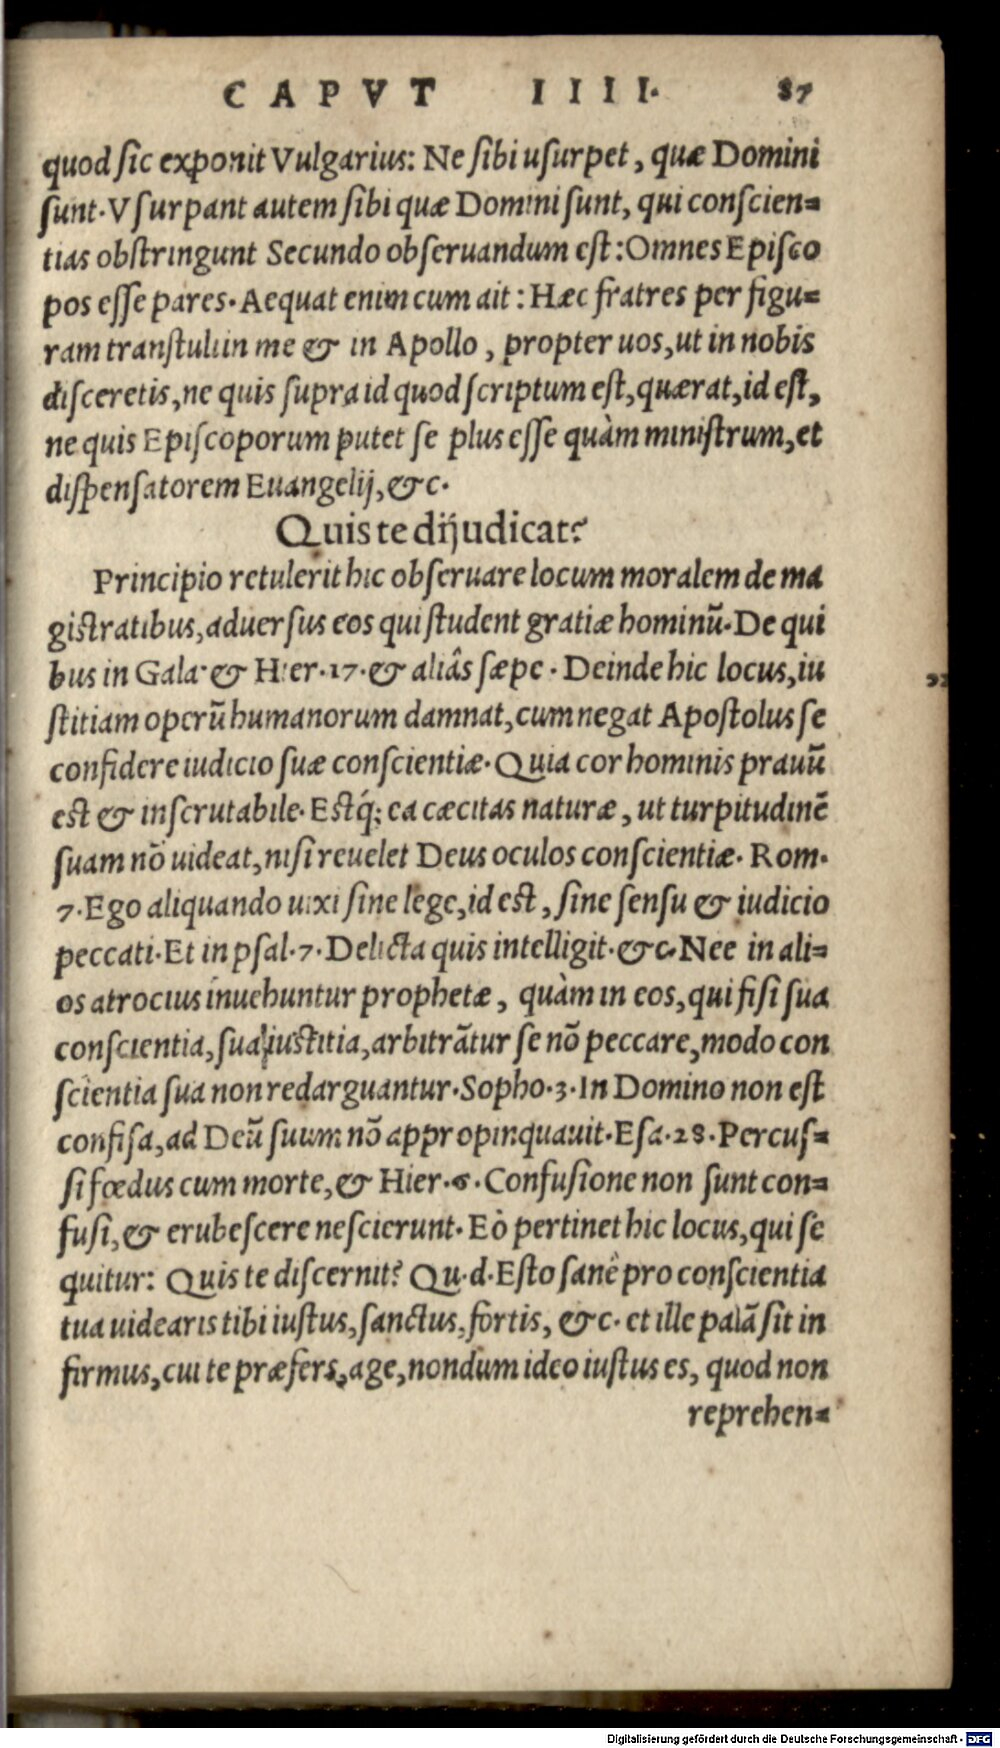 CAPVT IIII. 87
quod ſic exponit Vulgarius: Ne ſibi uſurpet, quæ Domini
ſunt. Vſurpant autem ſibi quæ Domini ſunt, qui conſcien=
tias obſtringunt Secundo obſeruandum eſt: Omnes Epiſco
pos eſſe pares. Aequat enim cum ait: Hæc fratres per figu=
ram tranſtuli in me & in Apollo, propter uos, ut in nobis
diſceretis, ne quis ſupra id quod ſcriptum eſt, quærat, id eſt,
ne quis Epiſcoporum putet ſe plus eſſe quàm miniſtrum, et
diſpenſatorem Euangelij, &c.
Quis te dijudicat?
Principio retulerit hic obſeruare locum moralem de ma
giſtratibus, aduerſus eos qui ſtudent gratiæ hominũ. De qui
bus in Gala. & Hier. 17. & aliâs ſæpe. Deinde hic locus, iu
ſtitiam operũ humanorum damnat, cum negat Apoſtolus ſe
confidere iudicio ſuæ conſcientiæ. Quia cor hominis prauũ
eſt & inſcrutabile. Eſtq́; ea cæcitas naturæ, ut turpitudinẽ
ſuam nõ uideat, niſi reuelet Deus oculos conſcientiæ. Rom.
7. Ego aliquando uixi ſine lege, id eſt, ſine ſenſu & iudicio
peccati. Et in pſal. 7. Delicta quis intelligit. &c. Nec in ali=
os atrocius inuehuntur prophetæ, quàm in eos, qui fiſi ſua
conſcientia, ſua iuſtitia, arbitrãtur ſe nõ peccare, modo con
ſcientia ſua non redarguantur. Sopho. 3. In Domino non eſt
confiſa, ad Deũ ſuum nõ appropinquauit. Eſa. 28. Percuſ=
ſi fœdus cum morte, & Hier. 6. Confuſione non ſunt con=
fuſi, & erubeſcere neſcierunt. Eò pertinet hic locus, qui ſe
quitur: Quis te diſcernit? Qu. d. Eſto ſanè pro conſcientia
tua uidearis tibi iuſtus, ſanctus, fortis, &c. et ille palã ſit in
firmus, cui te præfers, age, nondum ideo iuſtus es, quod non
reprehen=
Digitalisierung gefördert durch die Deutsche Forschungsgemeinschaft - DFG